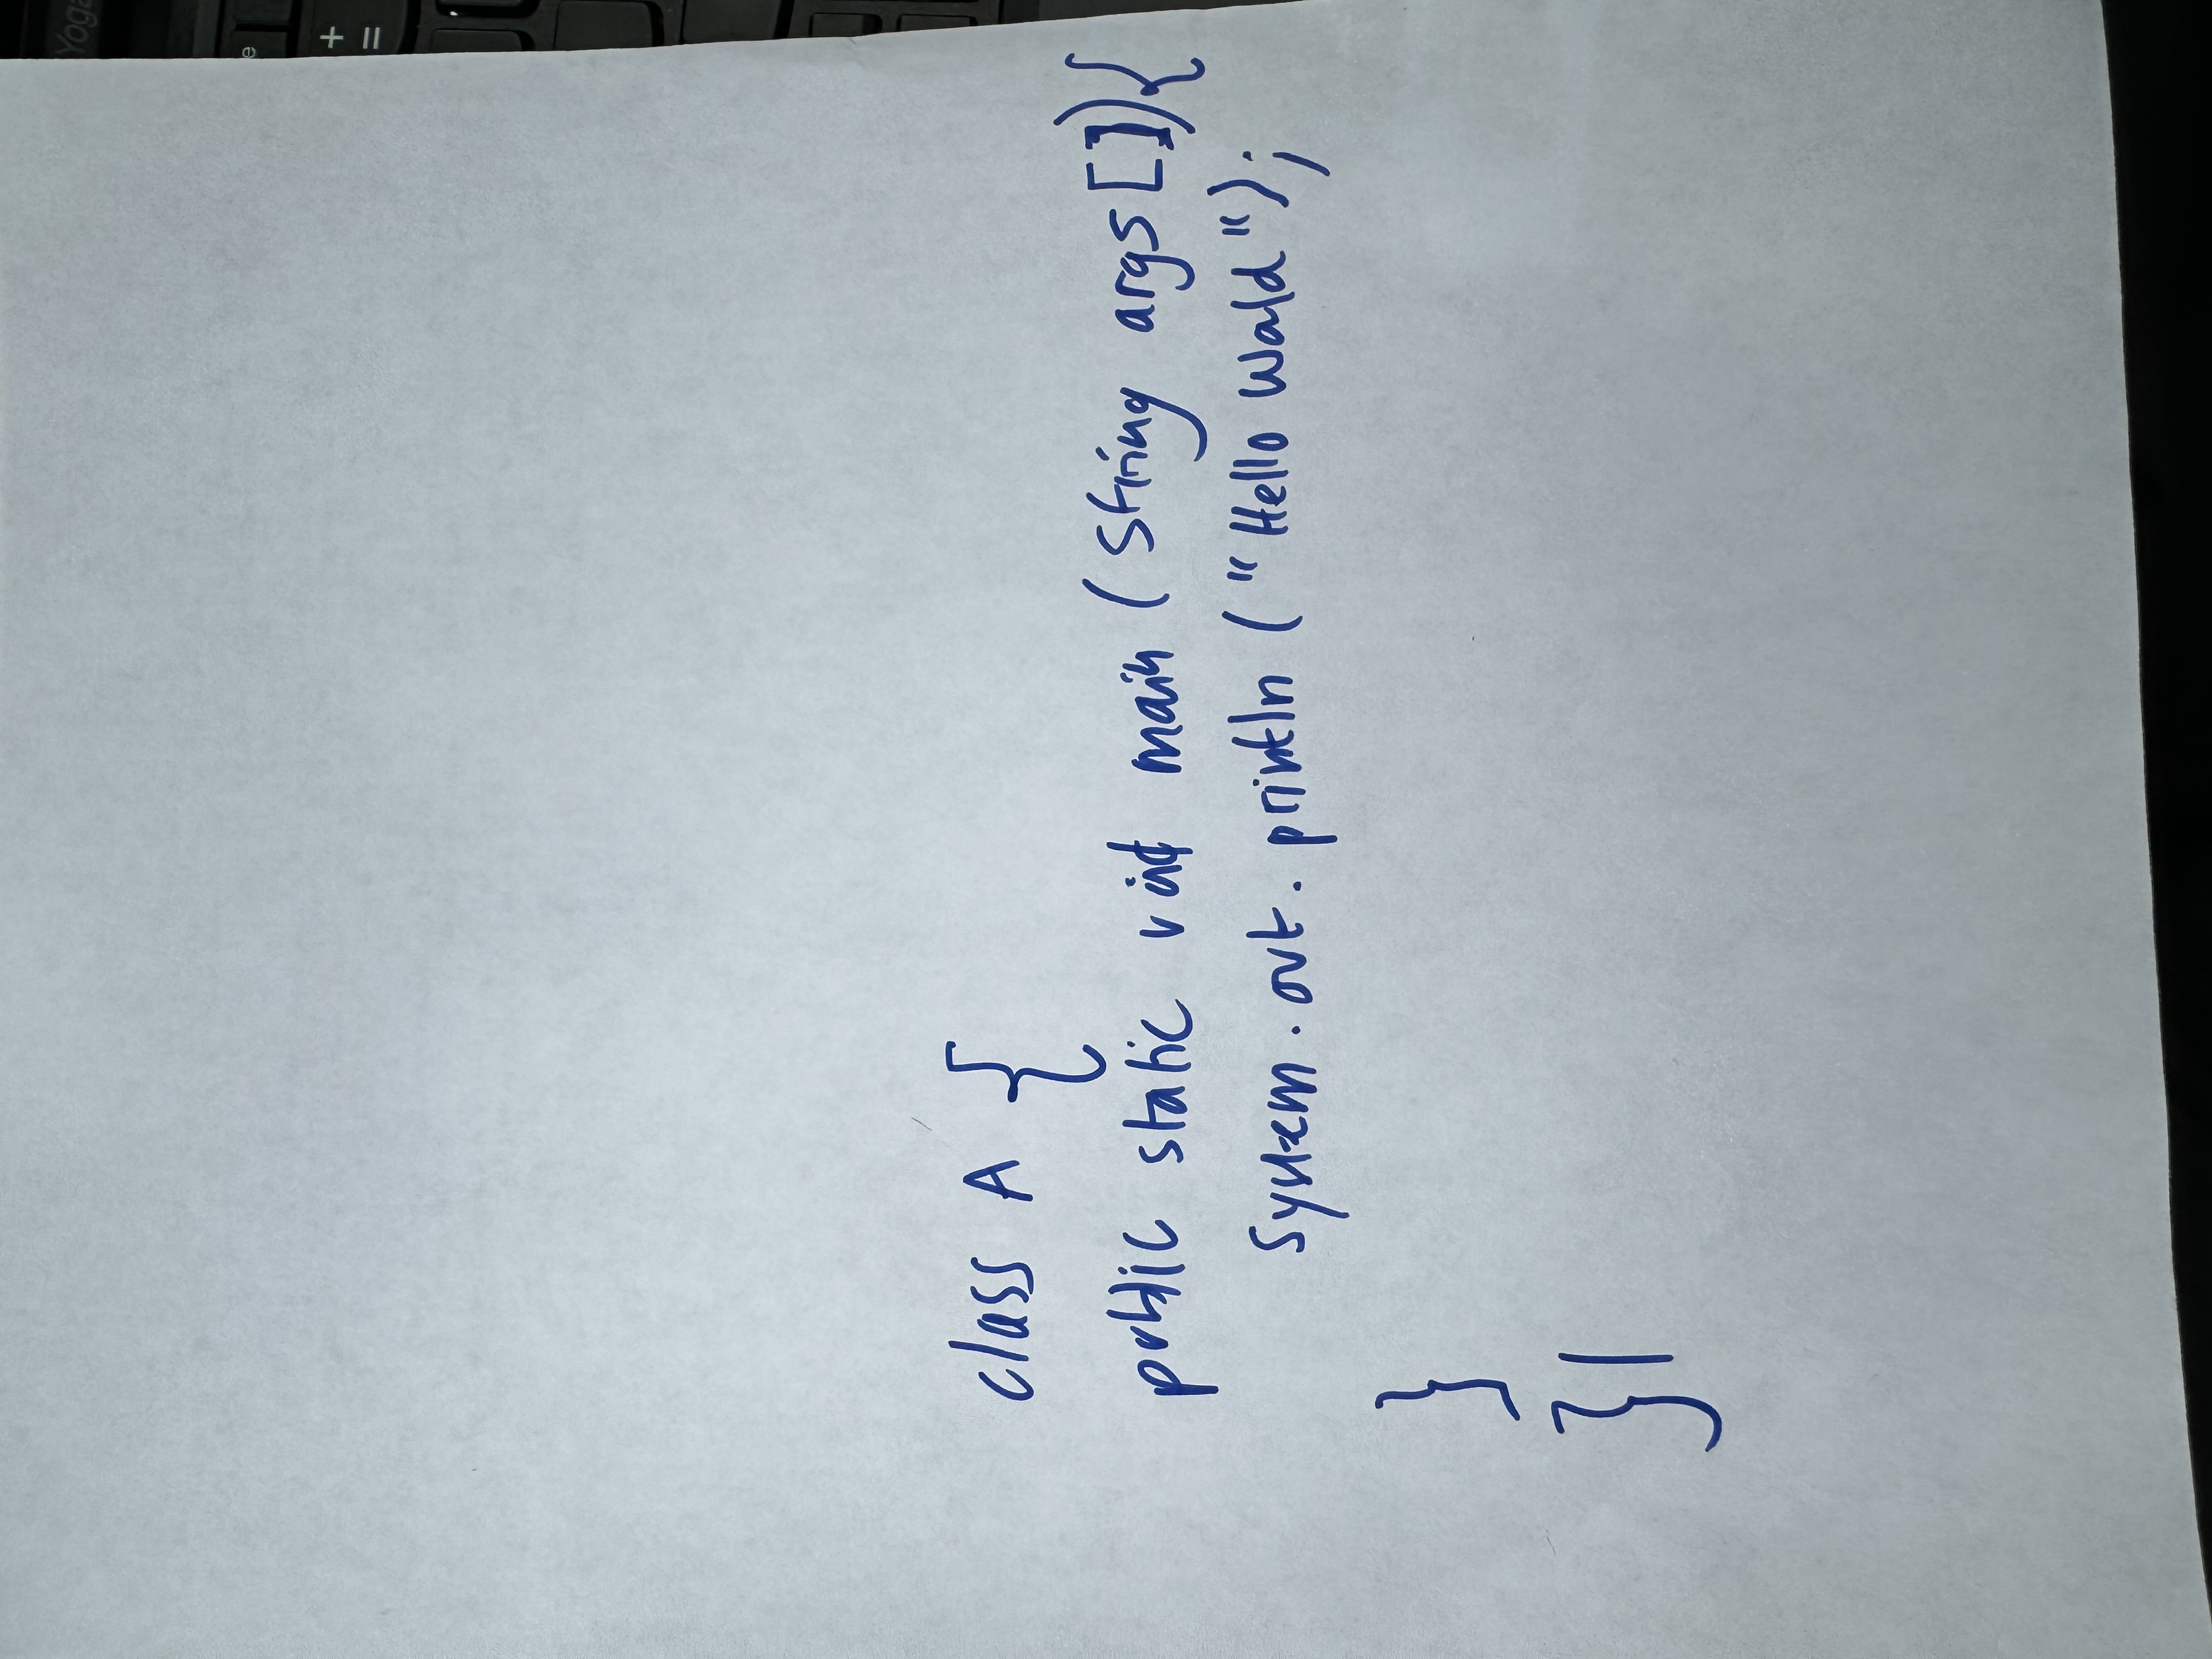 class A {
public static void main (String args[]){
System.out.println ("Hello World");
}
}|
Yoga
e
+
=